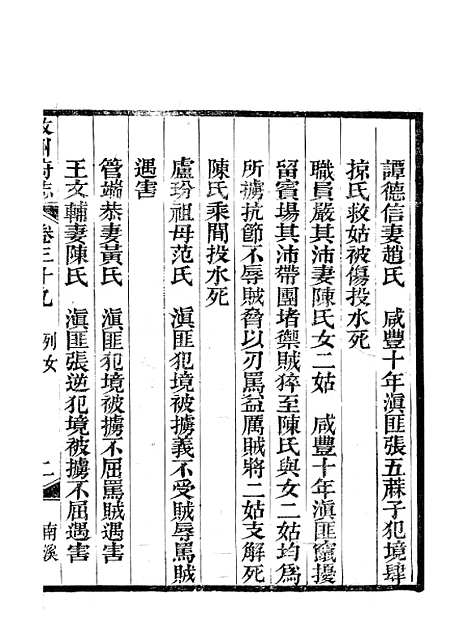 譚德信妻趙氏　咸豐十年滇匪張五蔴子犯境肆
掠氏救姑被傷投水死
職員嚴其沛妻陳氏女二姑　咸豐十年滇匪竄擾
留賓場其沛帶團堵禦賊猝至陳氏與女二姑均為
所擄抗節不辱賊脅以刃罵益厲賊將二姑支解死
陳氏乘間投水死
盧玢祖母范氏　滇匪犯境被擄義不受賊辱罵賊
遇害
管端恭妻黃氏　滇匪犯境被擄不屈罵賊遇害
王文輔妻陳氏　滇匪張逆犯境被擄不屈遇害
敘州府志　卷三十九　列女　二　南溪